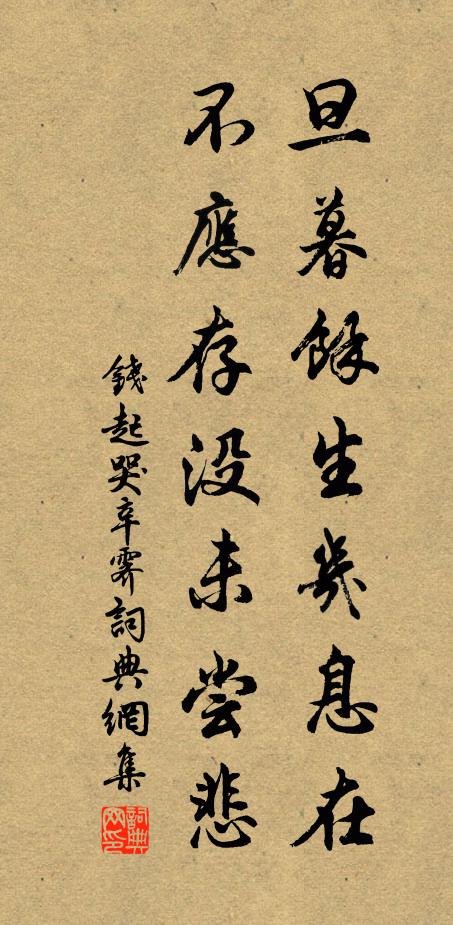 旦暮餘生幾息在
不應存没未尝悲
錢起哭辛霽詞典網集
詞典网印